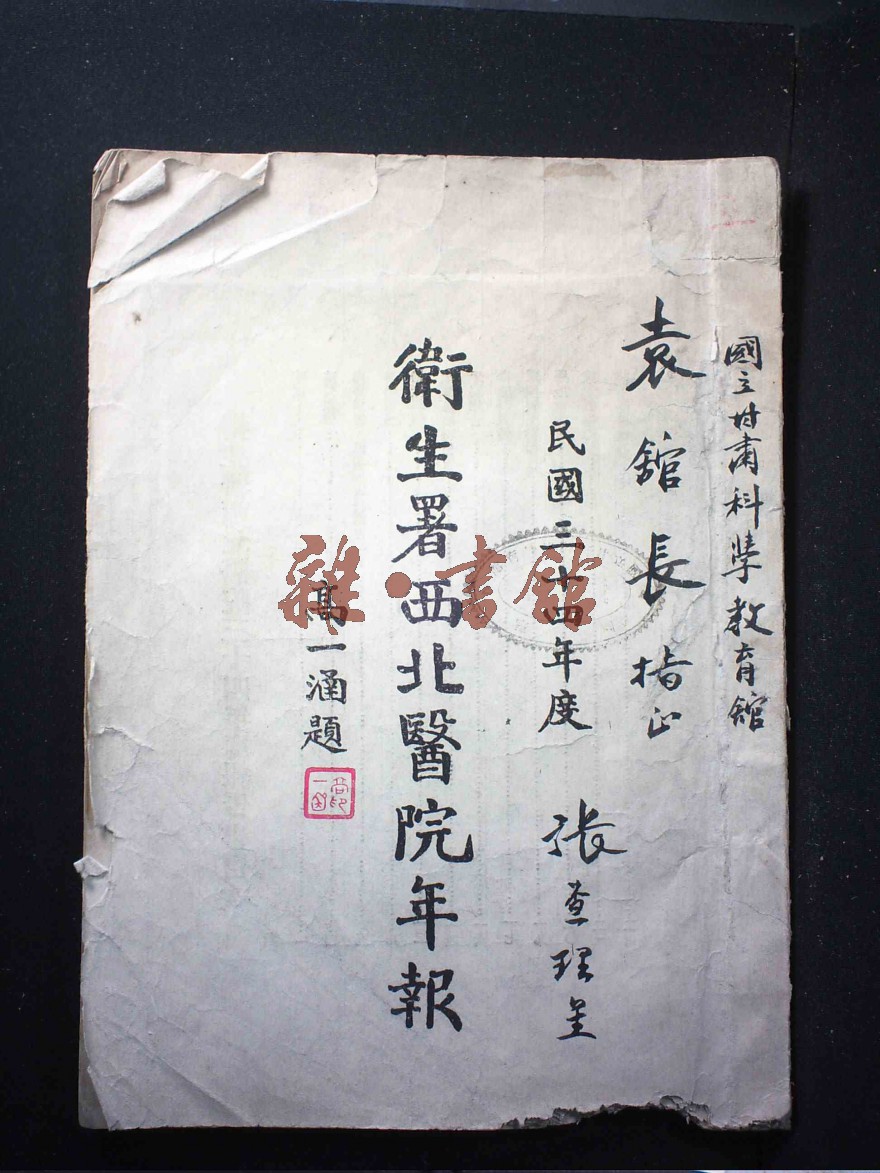 國立甘肅科學教育舘
袁舘長指正
民國三十四年度
張查理呈
衛生署西北醫院年報
高一涵題
雜·書舘